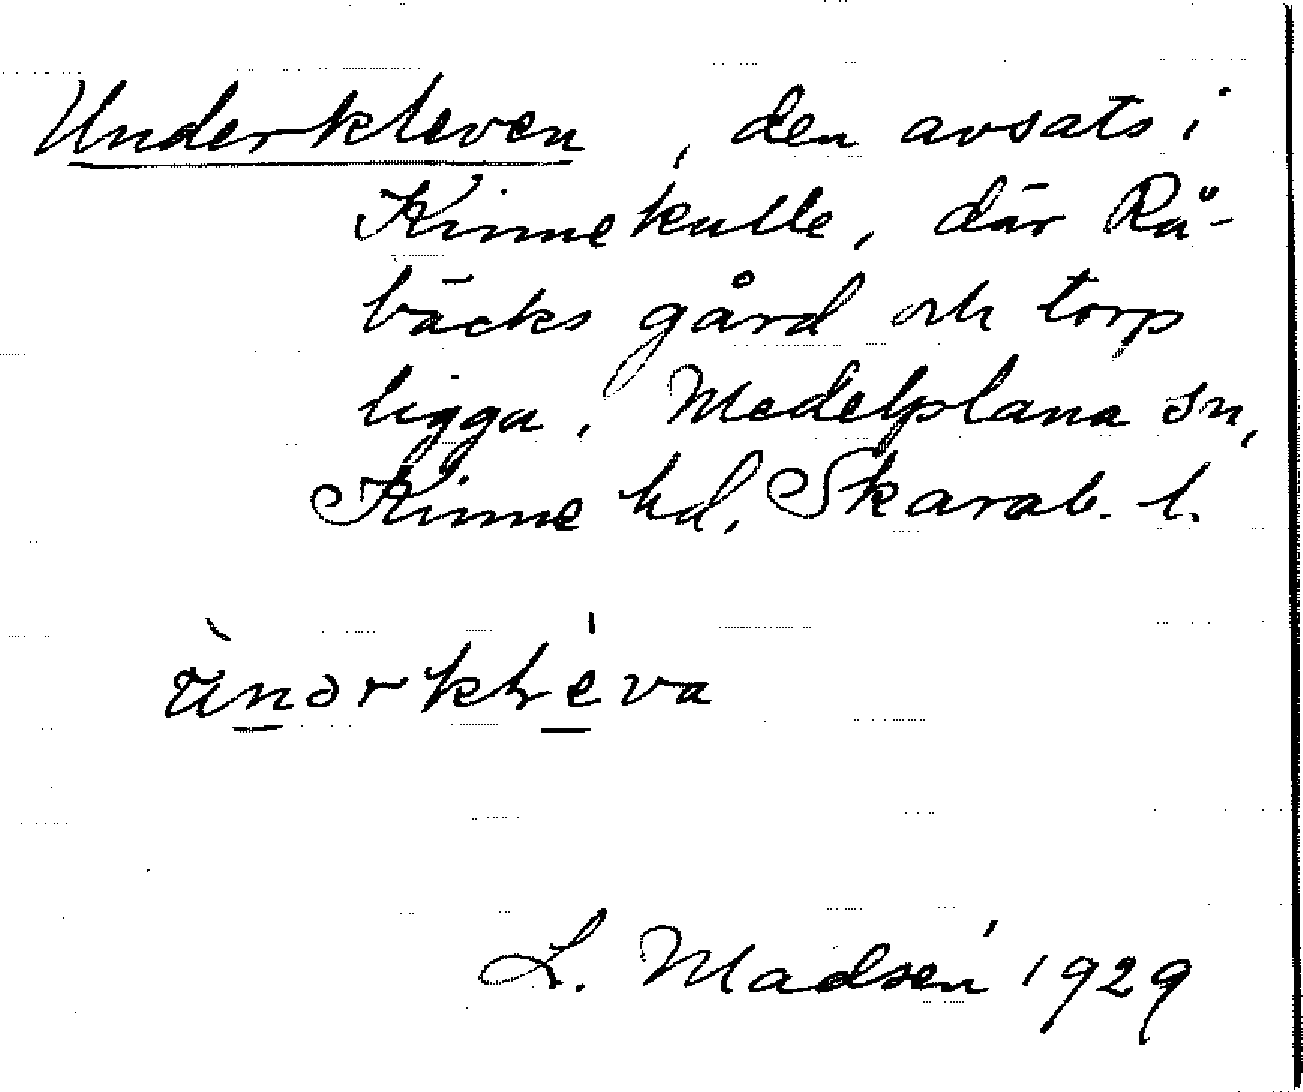 Underkleven, den avsats i
Kinnekulle, där Rå-
bäcks gård och torp
ligga. Medelplana sn,
Kinne hd, Skarab. l.
L. Madsén 1929